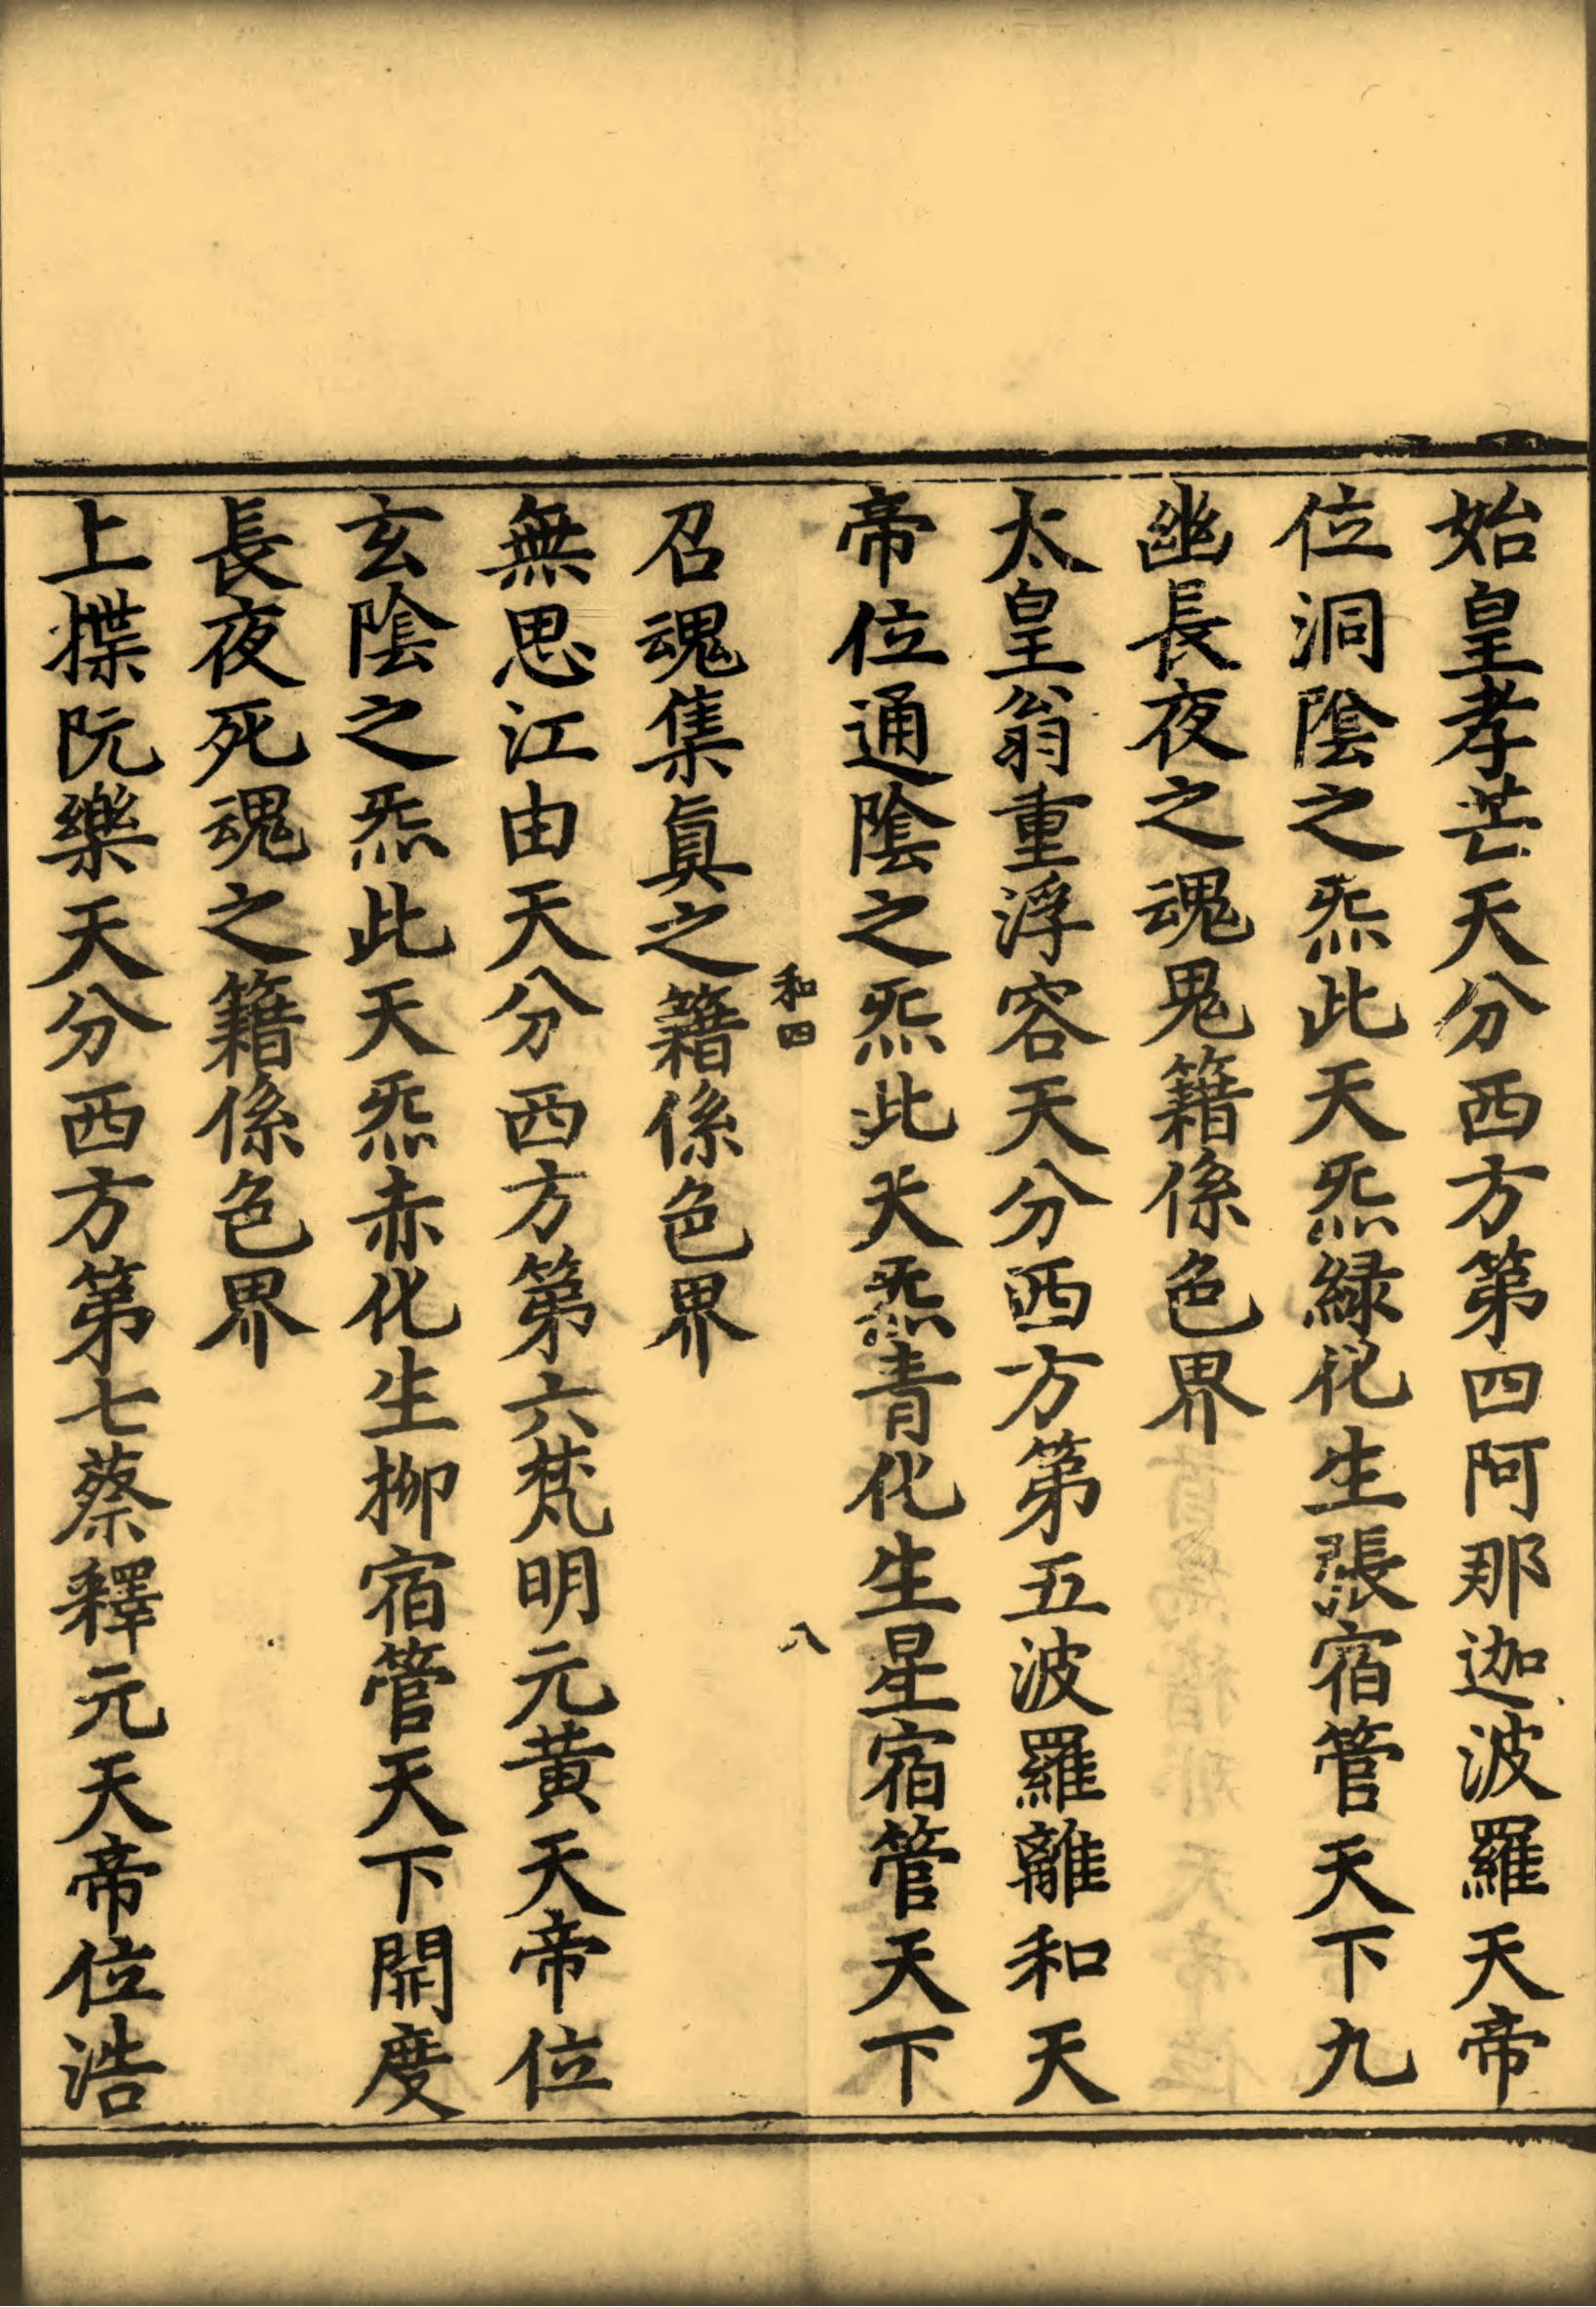 始皇孝芒天分西方第四阿那迦波羅天帝
位洞陰之炁此天炁緑化生張宿管天下九
幽長夜之魂鬼籍係色界
太皇翁重浮容天分西方第五波羅離和天
帝位通陰之炁此天炁青化生星宿管天下
和四
八
召魂集眞之籍係色界
無思江由天分西方第六梵明元黄天帝位
玄陰之炁此天炁赤化生栁宿管天下開度
長夜死魂之籍係色界
上揲阮樂天分西方第七蔡釋元天帝位浩